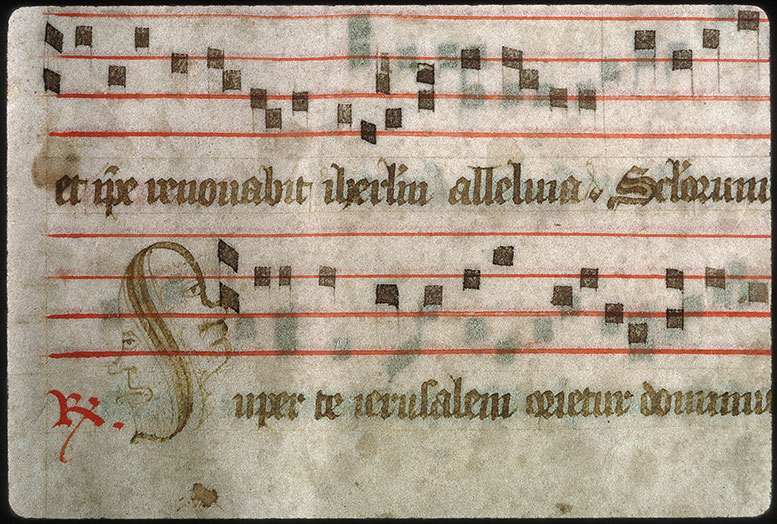 et ip̄e renouabit iherl̄m alleluia. Sctōrum
℟. Super te ierusalem orietur dominus